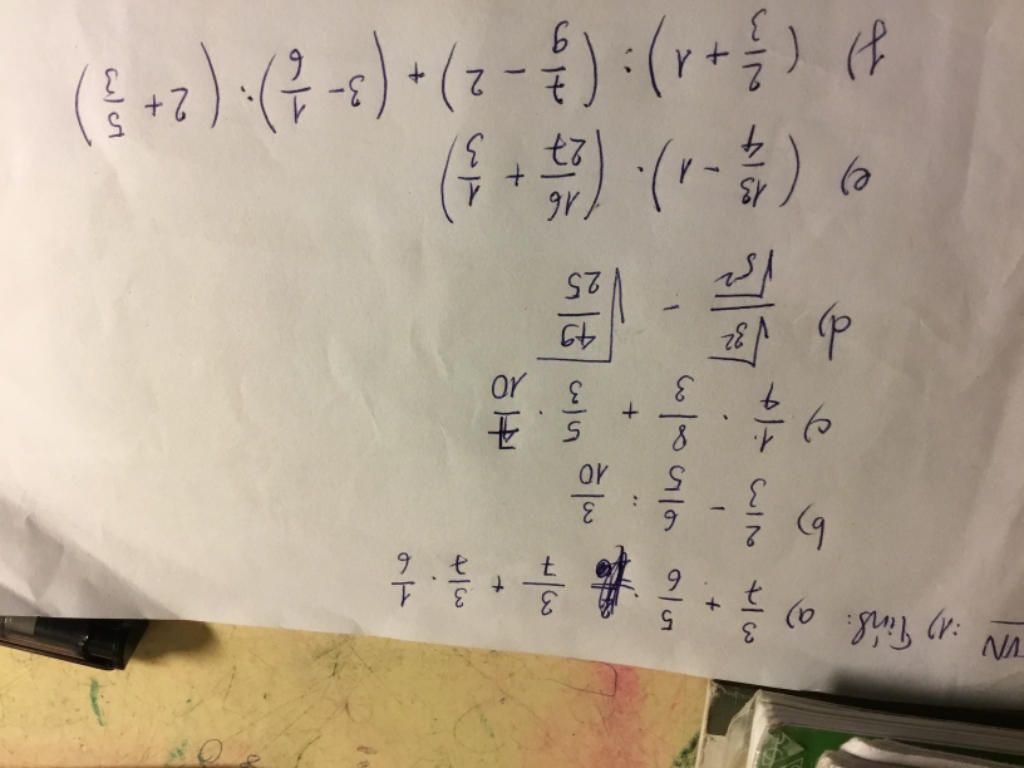 VN :1) Tính: a) 3/7 + 5/6 · 3/7 + 3/7 · 1/6
b) 2/3 - 6/5 : 3/10
c) 1/4 · 8/3 + 5/3 · 7/10
d) √3²/√5² - √(49/25)
e) (13/4 - 1) · (16/27 + 1/3)
f) (2/3 + 1) : (7/9 - 2) + (3 - 1/6) : (2 + 5/3)